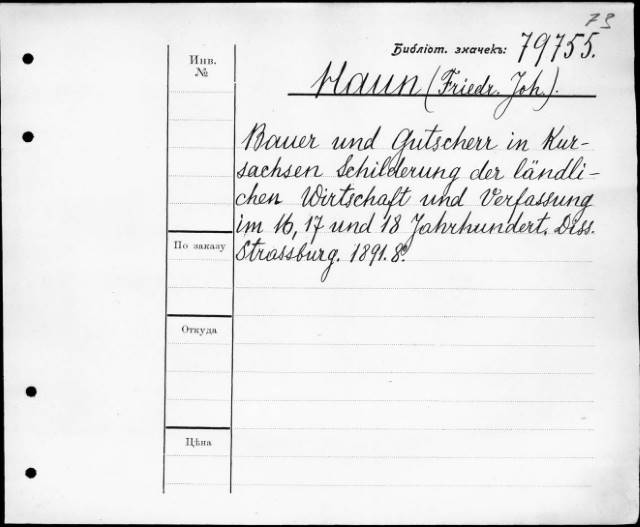 73
Библіот. значекъ: 79755.
Инв.
№
Haun (Friedr. Joh.).
Bauer und Gutscherr in Kur-
sachsen Schilderung der ländli-
chen Wirtschaft und Verfassung
im 16, 17 und 18 Jahrhundert. Diss.
Strassburg. 1891. 8º.
По заказу
Откуда
Цѣна